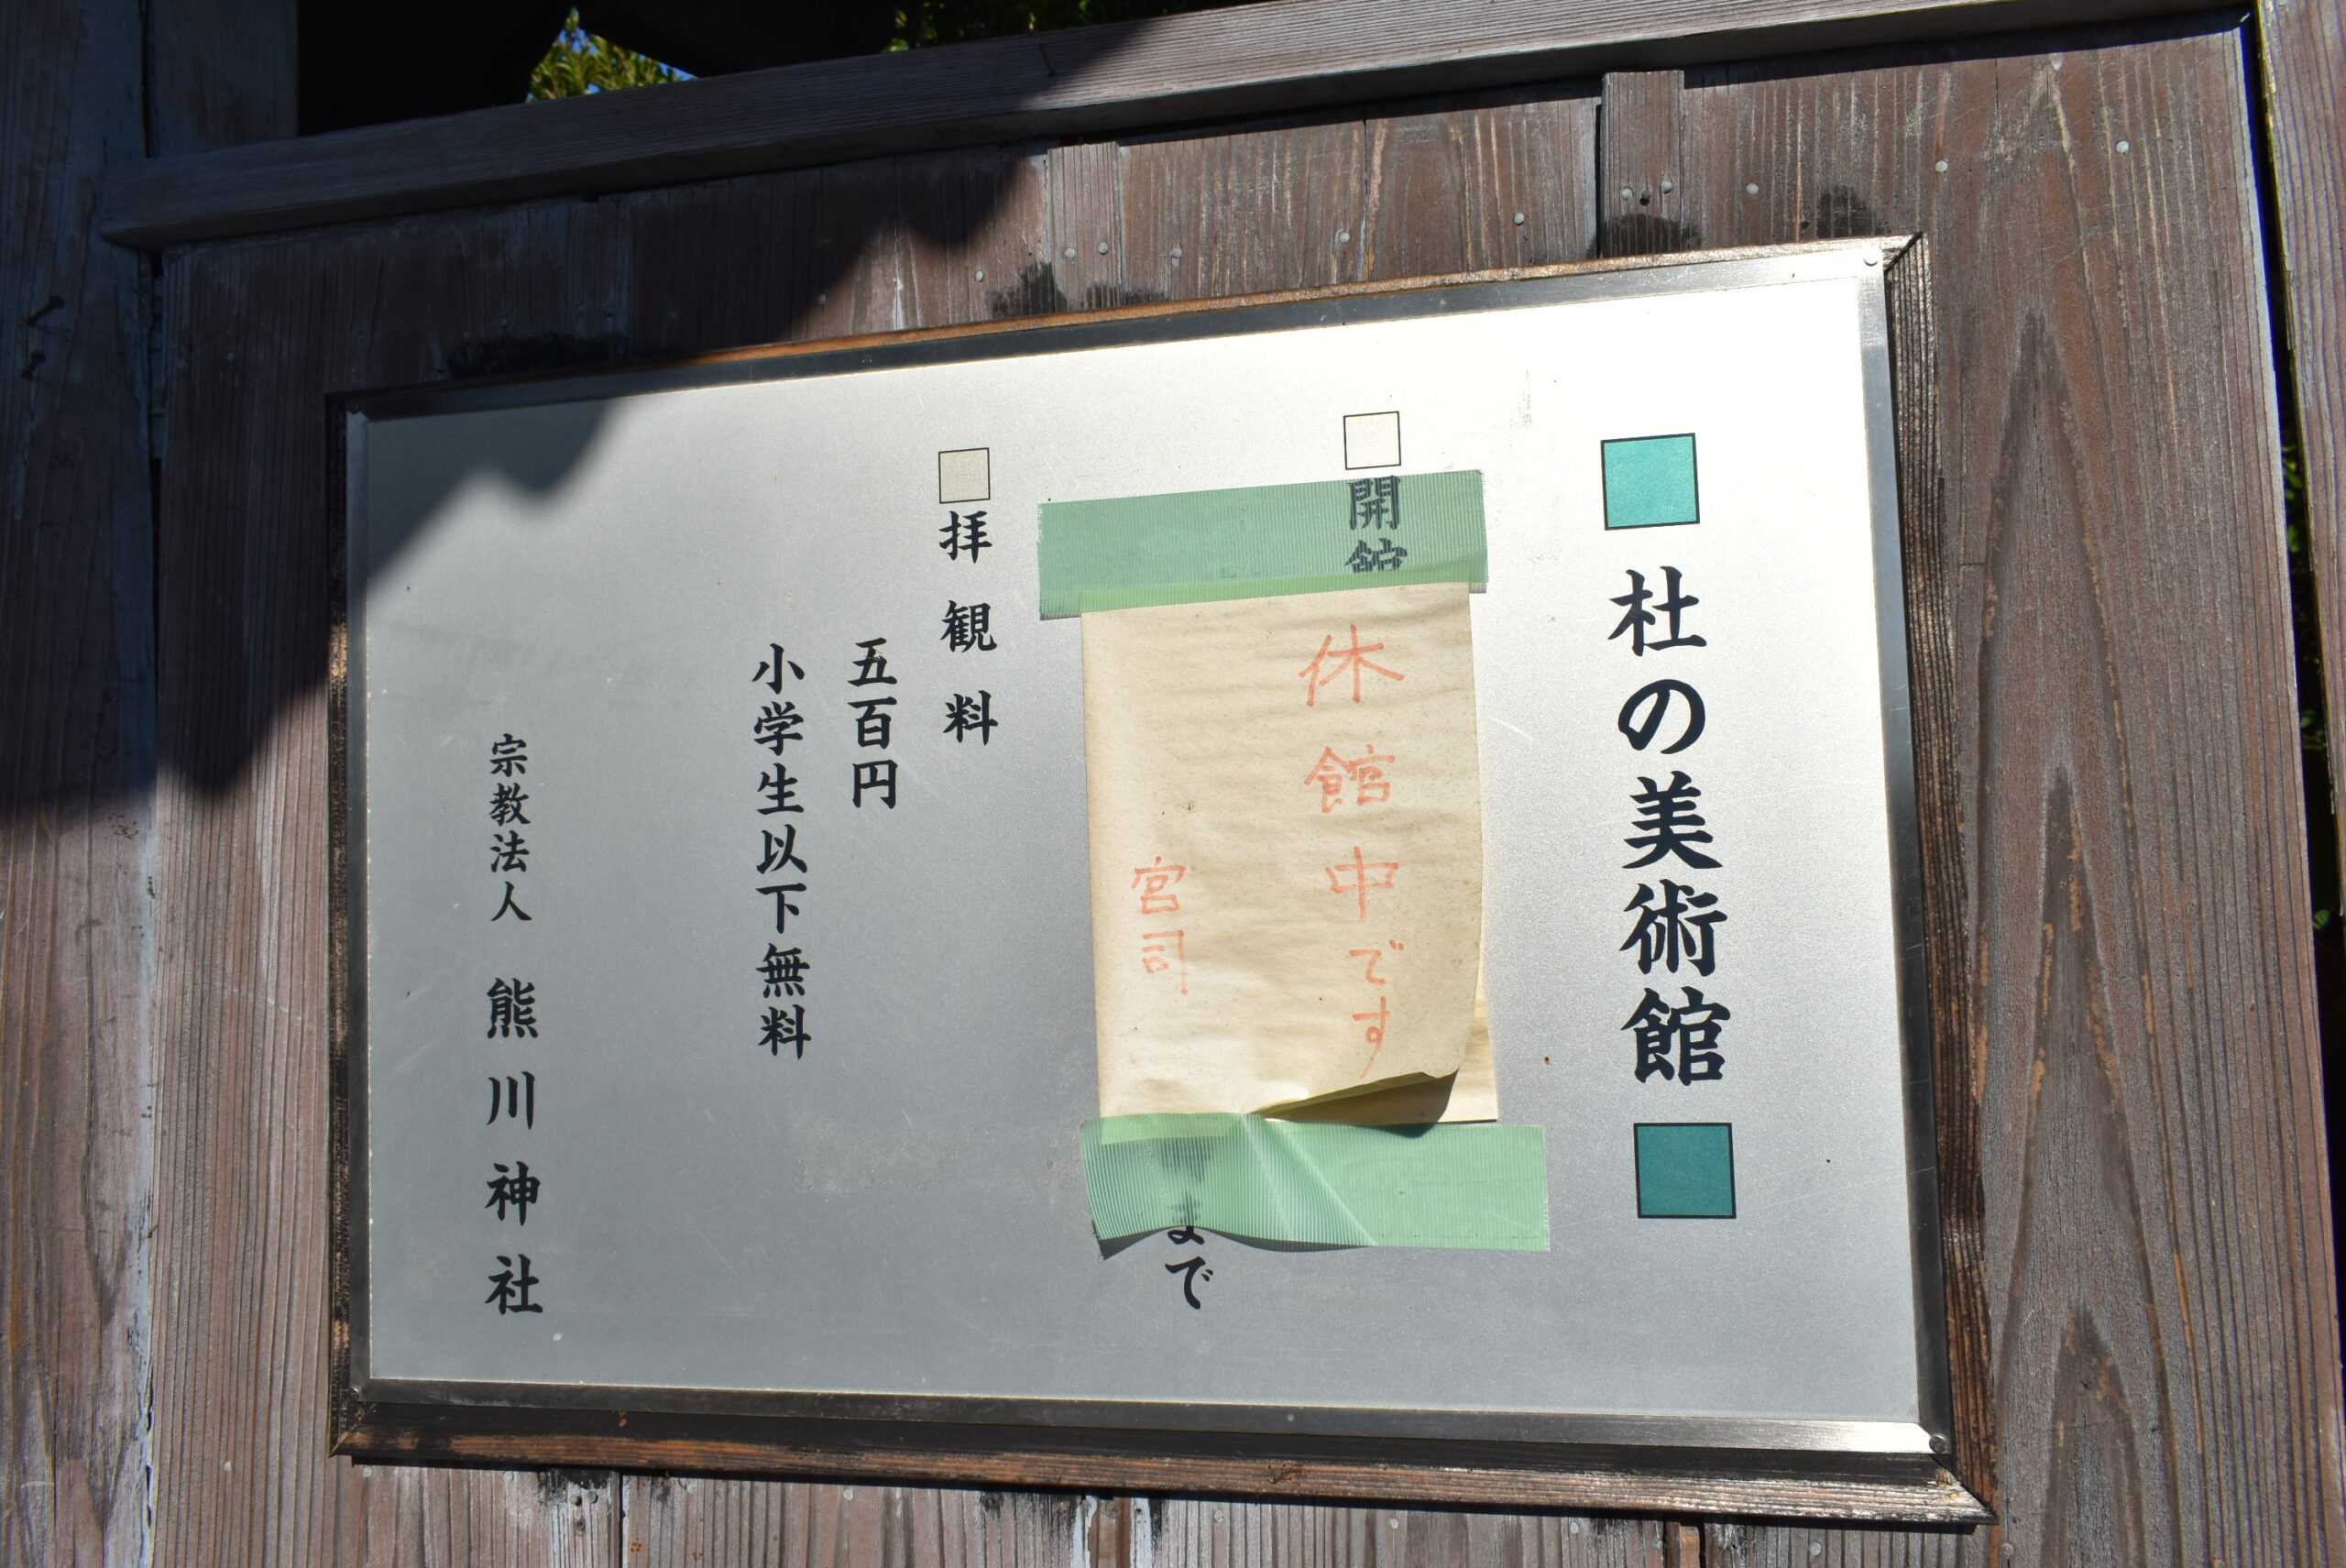 杜の美術館
開館
休館中です
宮司
まで
拝観料
五百円
小学生以下無料
宗教法人 熊川神社